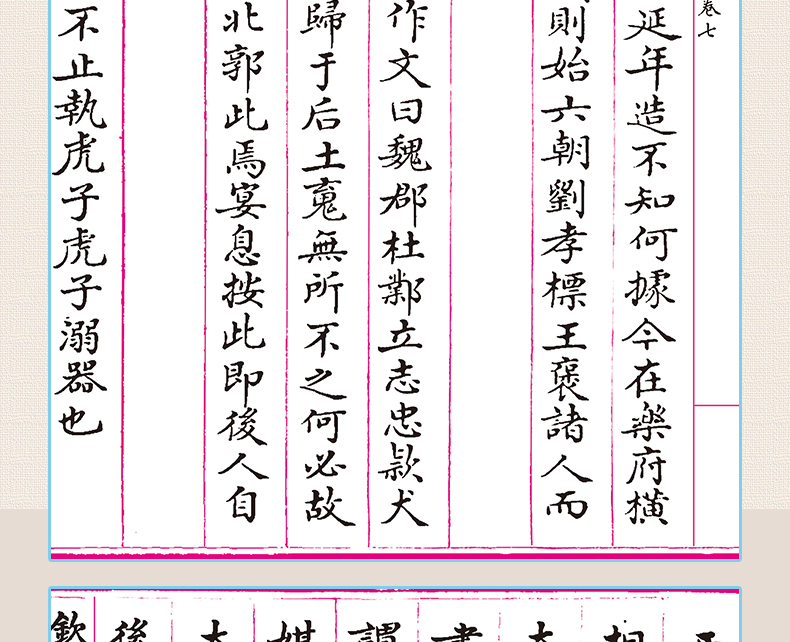 卷七
延年造不知何據今在樂府橫
則始六朝劉孝標王褒諸人而
作文曰魏郡杜鄴立志忠款犬
歸于后土䰟無所不之何必故
北郭此焉宴息按此即後人自
不止執虎子虎子溺器也
後
欽